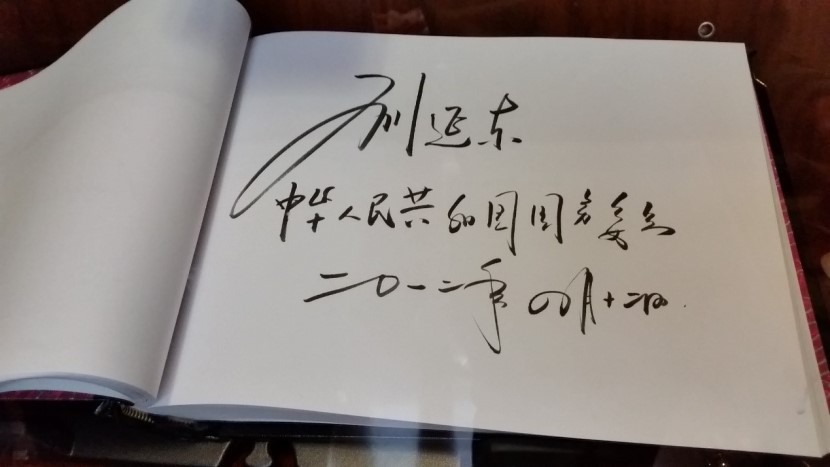 刘延东
中华人民共和国国务委员
二〇一二年四月十二日